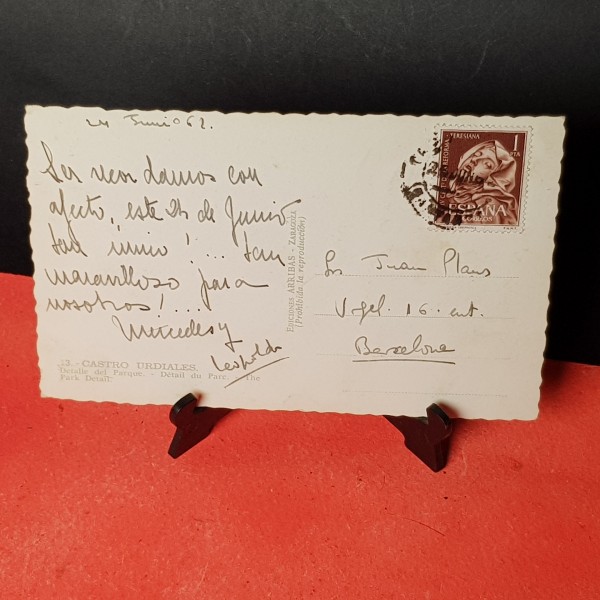 24 Junio 62.
afecto, este 24 de Junio
maravilloso para
nosotros!...
Mercedes y
Leopoldo
13.-CASTRO URDIALES.
Detalle del Parque. - Détail du Parc. - The
Park Detail.
EDICIONES ARRIBAS - ZARAGOZA
(Prohibida la reproducción)
IV CENT. DE LA REFORMA TERESIANA
1
PTA
ESPAÑA
CORREOS
Sr. Juan Plans
16. ent.
Barcelona